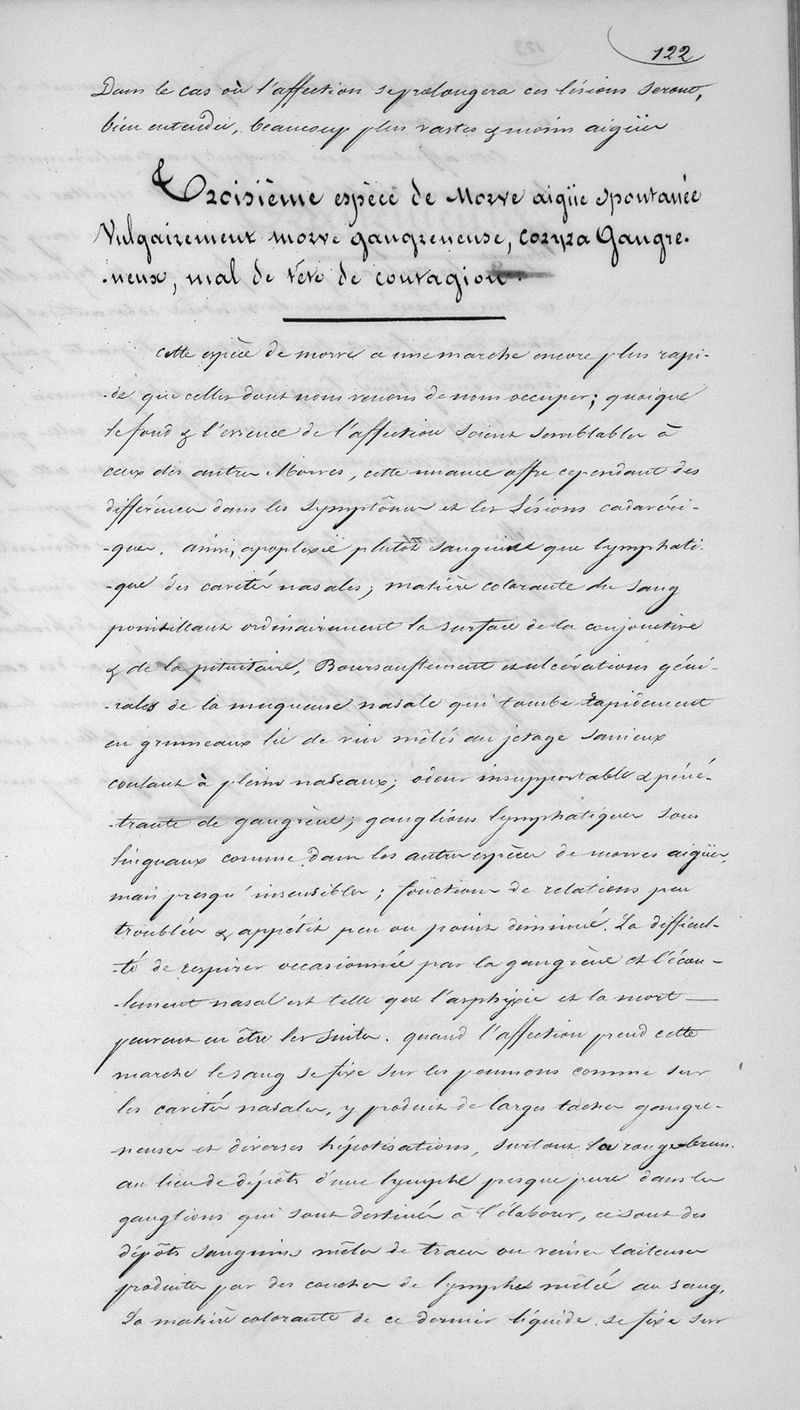 122
Dans le cas où l'affection se prolongera ces lésions seront,
bien entendu, beaucoup plus vastes & moins aigües
Troisième espèce de Morve aigüe spontanée
Vulgairement morve gangreneuse, coryza Gangre-
-neux, mal de tête de contagion.
Cette espèce de morve a une marche encore plus rapi-
-de que celles dont nous venons de nous occuper; quoique
le fond & l'essence de l'affection soient semblables à
ceux des autres Morves, cette nuance offre cependant des
différences dans les symptômes et les Lésions cadavéri-
-ques. ainsi, apoplexie plutôt sanguine que lymphati-
-que des cavités nasales; matière colorante du sang
pointillant ordinairement la surface de la conjonctive
& de la pituitaire, Boursouflement et ulcérations géné-
-rales de la muqueuse nasale qui tombe rapidement
en grumeaux lie de vin mêlés au jetage sanieux
coulant à pleins naseaux; odeur insupportable & péné-
-trante de gangrène; ganglions lymphatiques sous
linguaux comme dans les autres espèces de morves aigües,
mais presqu'insensibles; fonctions de relations peu
troublées & appétit peu ou point diminué. La difficul-
-té de respirer occasionnée par la gangrène et l'écou-
-lement nasal est telle que l'asphyxie et la mort
peuvent en être les suites. quand l'affection prend cette
marche le sang se fixe sur les poumons comme sur
les cavités nasales, y produit de larges taches gangre-
-neuses et diverses hépatisations, surtout la rouge-brun.
au lieu de dépôts d'une lymphe presque pure dans les
ganglions qui sont destinés à l'élaborer, ce sont des
dépôts sanguins mêlés de traces ou veines laiteuses
produites par des couches de lymphes mêlée au sang.
La matière colorante de ce dernier liquide se fixe sur